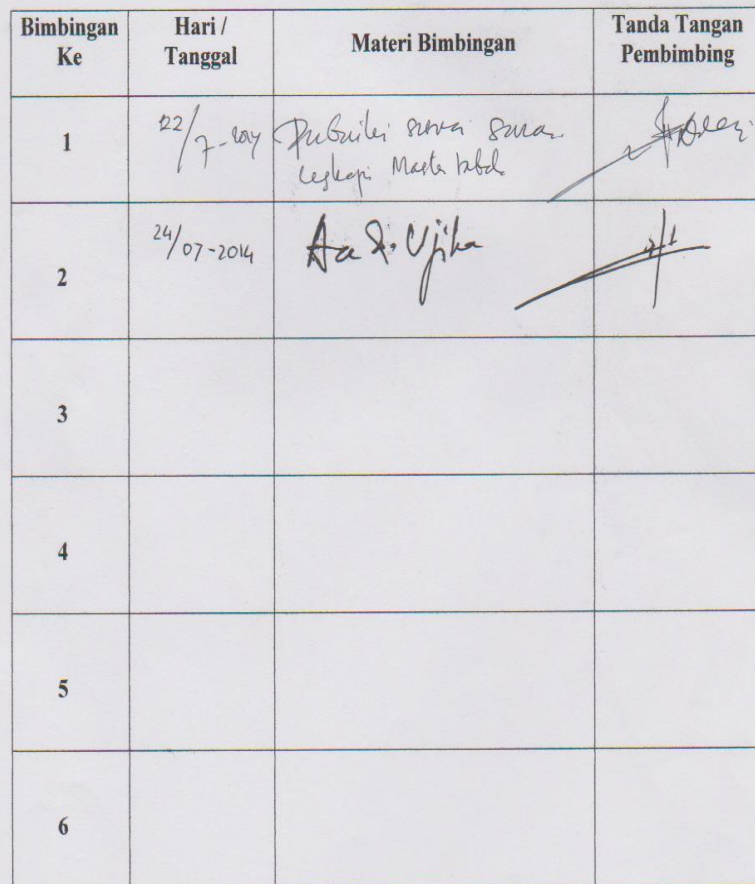 Bimbingan Ke Hari / Tanggal Materi Bimbingan Tanda Tangan Pembimbing
1 22/7-2014 Perbaiki sesuai saran
Lengkapi Master tabel
2 24/07-2014 Ujika
3
4
5
6